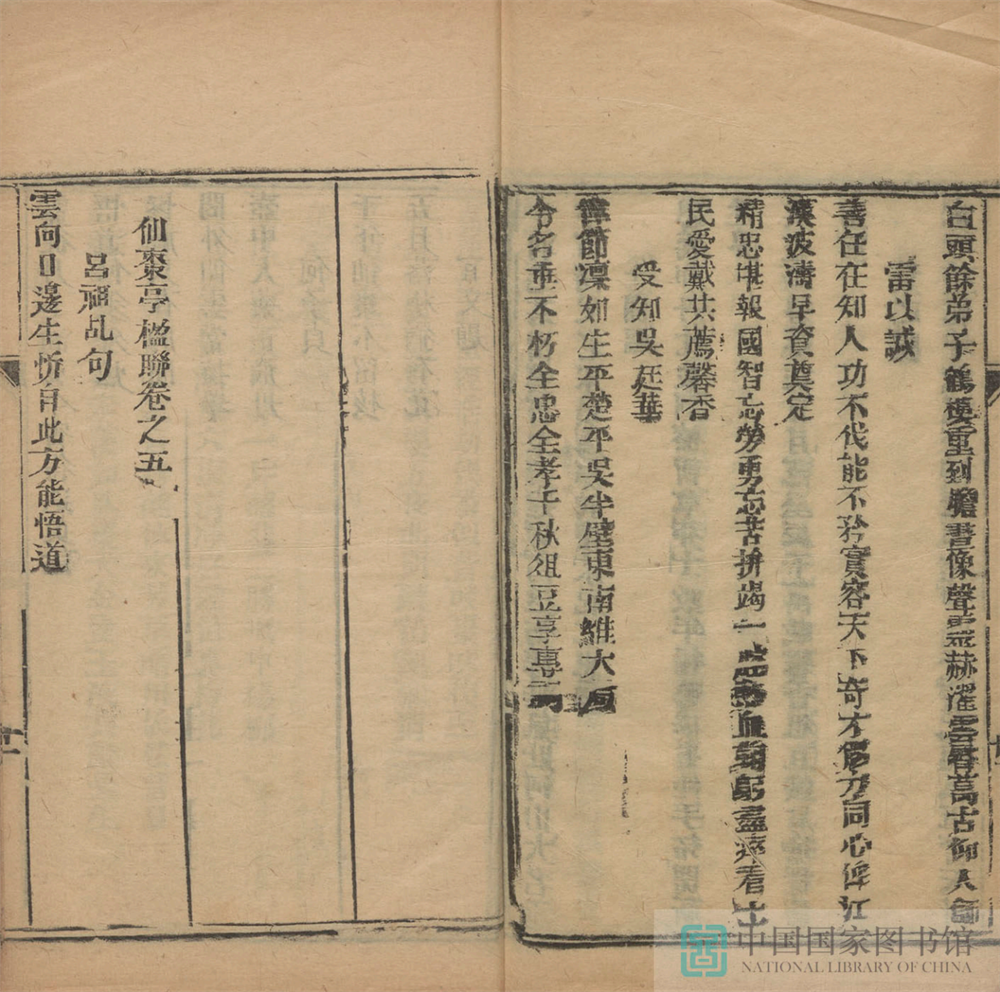 白頭餘弟子鶴樓重到瞻畫像聲靈赫濯雲霄萬古仰人
雷以諴
善任在知人功不伐能不矜實容天下奇才僇力同心俾江
漢波濤早資奠定
精忠堪報國智忘勞勇忘苦拚竭一血鞠躬盡瘁看士
民愛戴共薦馨香
受知吳廷華
偉節凜如生平楚平吳半壁東南維大局
令名垂不朽全忠全孝千秋俎豆享專
仙棗亭楹聯卷之五
呂祖乩句
雲向日邊生忻自此方能悟道
十
中国国家图书馆
NATIONAL LIBRARY OF CHINA